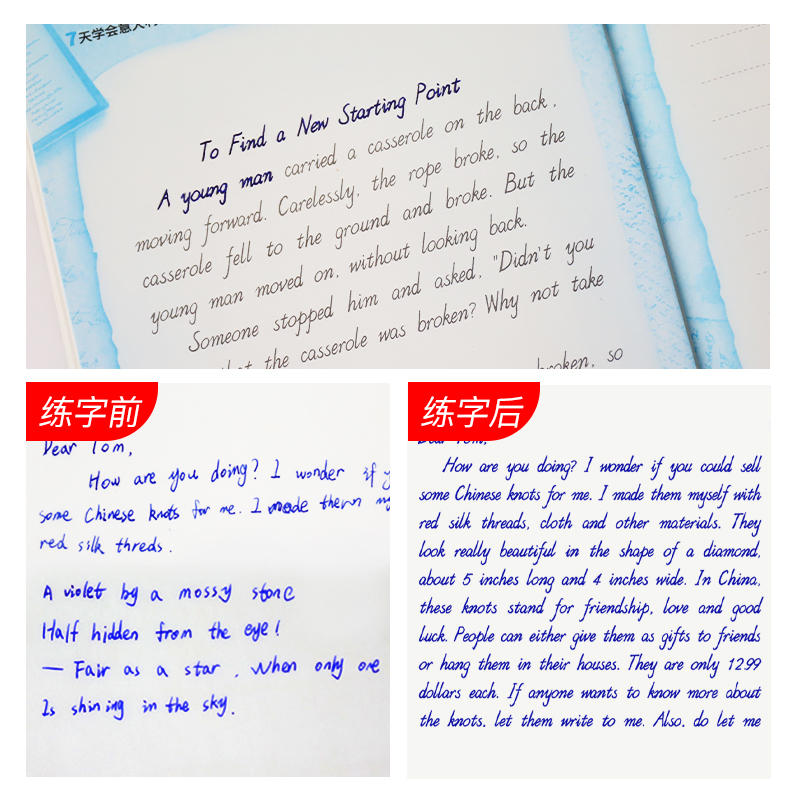 7天学会意大利
To Find a New Starting Point
A young man carried a casserole on the back,
moving forward. Carelessly, the rope broke, so the
casserole fell to the ground and broke. But the
young man moved on, without looking back.
Someone stopped him and asked, "Didn't you
that the casserole was broken? Why not take
broken, so
练字前
Dear Tom,
How are you doing? I wonder if y
some Chinese knots for me. I made them my
red silk threds.
A violet by a mossy stone
Half hidden from the eye!
— Fair as a star, when only one
Is shining in the sky.
练字后
Dear Tom,
How are you doing? I wonder if you could sell
some Chinese knots for me. I made them myself with
red silk threads, cloth and other materials. They
look really beautiful in the shape of a diamond,
about 5 inches long and 4 inches wide. In China,
these knots stand for friendship, love and good
luck. People can either give them as gifts to friends
or hang them in their houses. They are only 12.99
dollars each. If anyone wants to know more about
the knots, let them write to me. Also, do let me